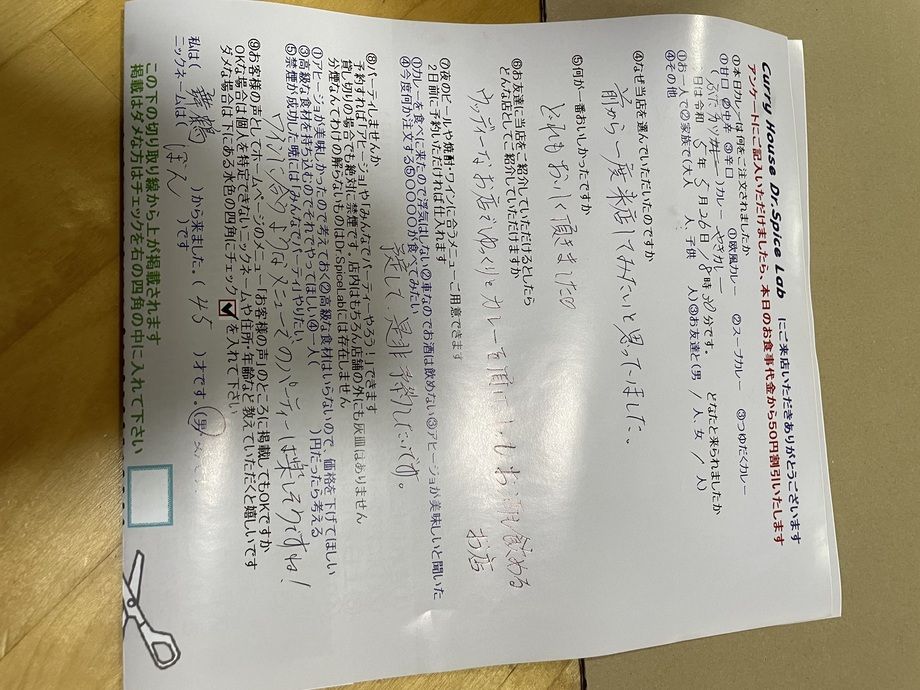 Curry House Dr.Spice Lab にご来店いただきありがとうございます
アンケートにご記入いただけましたら、本日のお食事代金から50円割引いたします
①本日カレーは何をご注文されましたか ①欧風カレー ②スープカレー ③つゆだくカレー
①甘口 ②中辛 ③辛口
カレー やぎカレー
日は令和 5年 5月26日 18時 分です。 どなたと来られましたか
①お一人で②ご家族で(大人 人、子供 人)③お友達と(男 / 人、女 / 人)
④その他
④なぜ当店を選んでいただいたのですか
前から一度来店してみたいと思ってました。
⑤何が一番おいしかったですか
どれもおいしく頂きました
⑥お友達に当店をご紹介していただけるとしたら
どんな店としてご紹介していただけますか
ウッディーなお店でゆっくりとカレーを頂 お酒も飲める
お店
⑦夜のビールや焼酎・ワインに合うメニューご用意できます
2日前に予約いただければ仕入れます
①カレーを食べに来たので浮気はしない②車なのでお酒は飲めない③アヒージョが美味しいと聞いた
④今度何か注文する⑤〇〇〇〇が食べてみたい
是非予約したいです。
⑧パーティしませんか
予約すればアヒージョや「みんなでパーティーやろう!」できます
貸し切りの場合でも絶対に禁煙です。店内はもちろん店舗の外にも灰皿はありません
分煙なんてわけの解らないものはDr.SpiceLabには存在しません
①アヒージョが美味しかったので考えておく②高級な食材はいらないので、価格を下げてほしい
③高級な食材を持ち込むのでそれでやってほしい④一人( )円だったら考える
⑤禁煙が成功した暁には「みんなでパーティやりたい」
ワインに合うようなメニューでのパーティーは楽しそうですね!
⑨お客様の声としてホームページのメニュー「お客様の声」のところに掲載してもOKですか
OKな場合は個人を特定できないニックネームや住所・年齢など教えていただくと嬉しいです
ダメな場合は下にある水色の四角にチェック☑を入れて下さい
私は( 舞鶴 )から来ました。( 45 )才です。(男
ニックネームは( ぽん )です
この下の切り取り線から上が掲載されます
掲載はダメな方はチェックを右の四角の中に入れて下さい